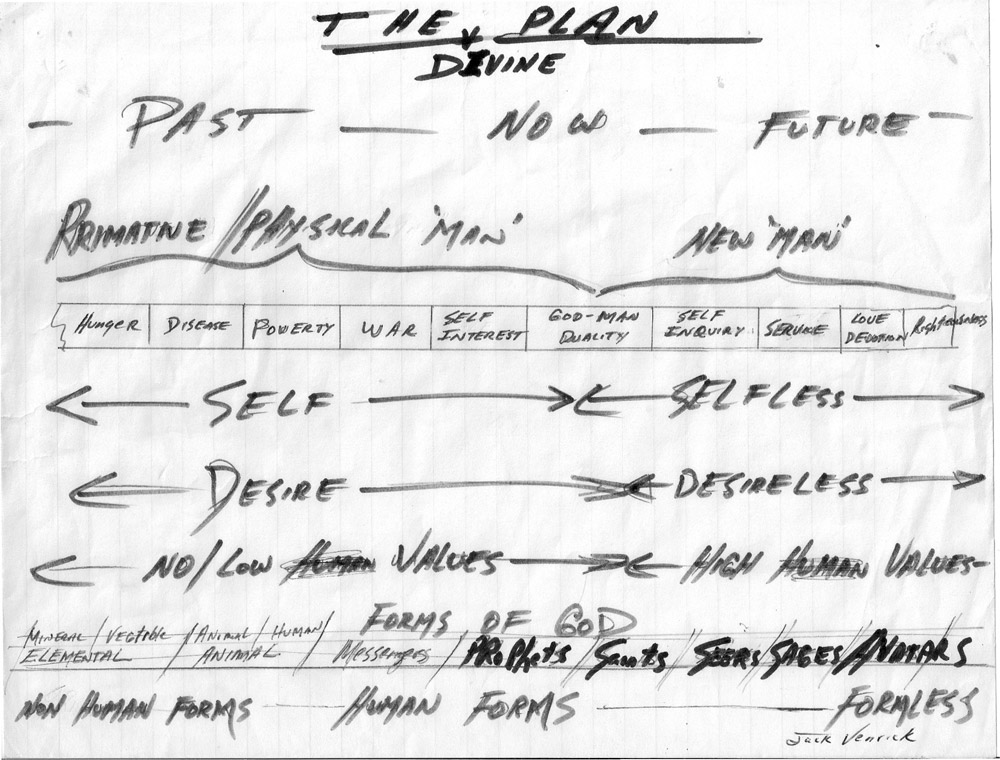 THE PLAN
DIVINE
- PAST - NOW - FUTURE -
PRIMATIVE / PHYSICAL 'MAN' NEW 'MAN'
Hunger DISEASE POVERTY WAR SELF INTEREST GOD-MAN QUALITY SELF INQUIRY SERVICE LOVE DEVOTION Righteousness
SELF SELFLESS
DESIRE DESIRELESS
NO/LOW HUMAN VALUES HIGH HUMAN VALUES-
FORMS OF GOD
MINERAL / VEGTIBLE / ANIMAL / HUMAN /
ELEMENTAL / ANIMAL / Messengers / PROPhets / Saints / SEERS / SAGES / AVATARS
NON HUMAN FORMS HUMAN FORMS FORMLESS
Jack Venrick